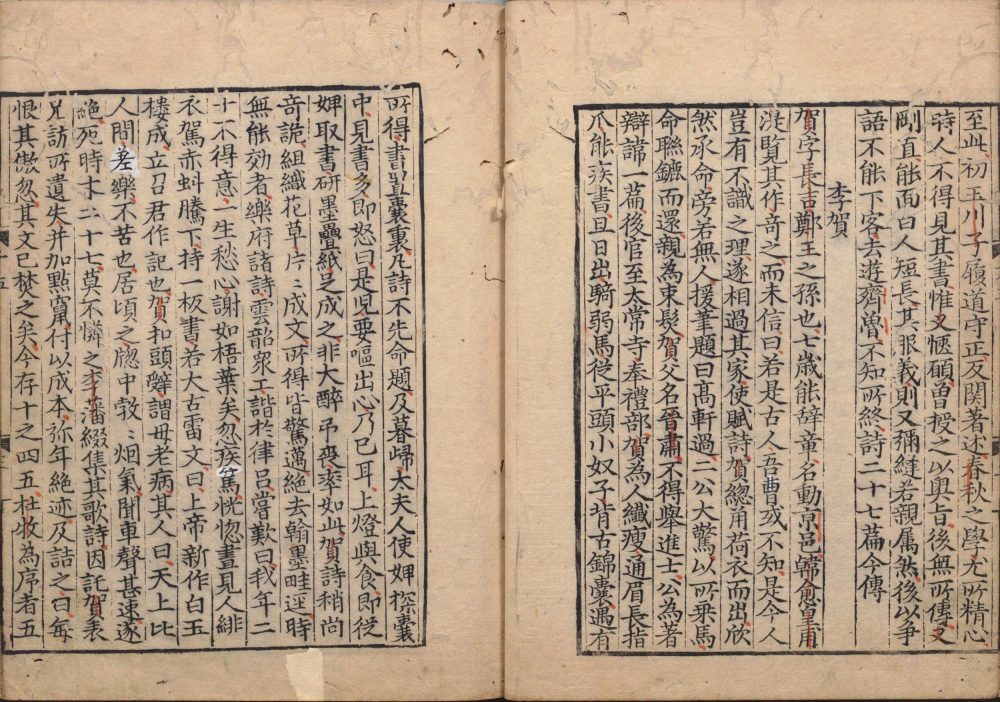 至此初玉川子履道守正反關著述春秋之學尤所精心
時人不得見其書惟又愜願曽授之以奥旨後無所傳又
剛直能面白人短長其服義則又彌縫若親属然後以争
語不能下客去遊齊曽不知所終詩二十七篇今傳
李賀
賀字長吉鄭王之孫也七歳能辞章名動京邑韓愈皇甫
湜覧其作奇之而未信曰若是古人吾曹或不知是今人
豈有不識之理遂相過其家使賦詩賀總角荷衣而出欣
然承命旁若無人援筆題曰髙軒過二公大驚以所乗馬
命聯鑣而還親為束髮賀父名晉肅不得舉進士公為著
辯諱一篇後官至太常寺奉禮郎賀為人纎瘦通眉長指
爪能疾書旦日出騎弱馬從平頭小奴子背古錦囊遇有
所得書置囊裏凡詩不先命題及暮歸太夫人使婢探囊
中見書多即怒曰是児要嘔出心乃已耳上燈與食即從
婢取書研墨疊紙足成之非大醉弔喪率如此賀詩稍尚
奇詭組織花草片〻成文所得皆驚邁絶去翰墨畦逕時
無能効者樂府諸詩雲韶衆工諧於律吕嘗歎曰我年二
十不得意一生愁心謝如梧葉矣忽疾篤恍惚晝見人緋
衣駕赤虯騰下持一板書若大古雷文曰上帝新作白玉
樓成立召君作記也賀扣頭辤謂母老病其人曰天上比
人間差樂不苦也居頃之牎中㪍〻烟氣聞車聲甚速遂
絶死時才二十七莫不憐之李藩綴集其歌詩因託賀表
兄訪所遺失并加點竄付以成本弥年絶迹及詰之曰毎
恨其傲忽其文已焚之矣今存十之四五杜牧為序者五